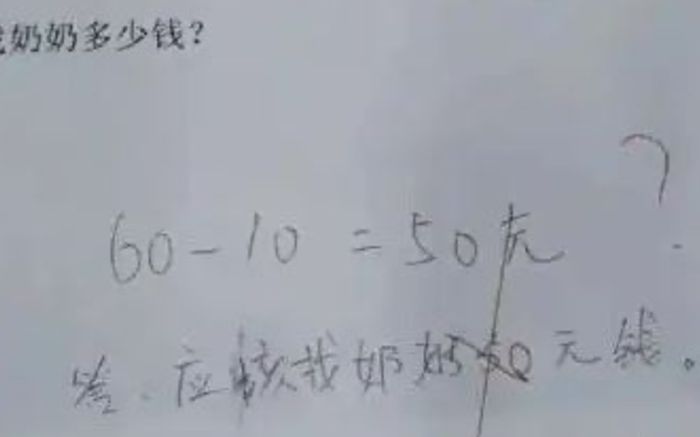 奶奶多少钱?
?
60-10=50元
答.应该找奶奶50元钱。